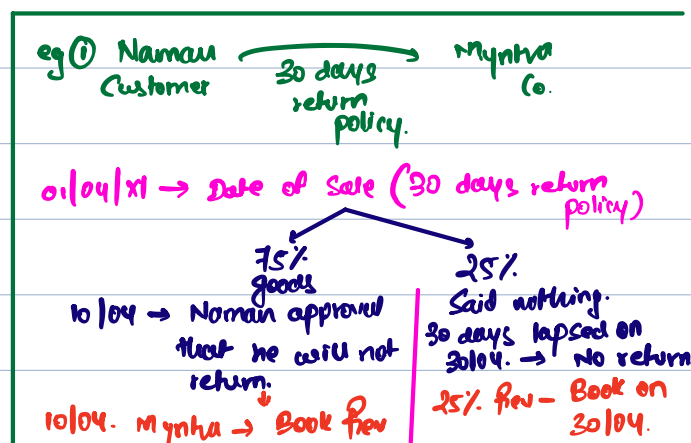 eg ① Naman → Myntra
Customer 30 days Co.
return
policy.
01/04/x1 → Date of Sale (30 days return
policy)
75%
goods
10/04 → Naman approved
that he will not
return.
10/04. Myntra → Book Rev
25%
Said nothing.
30 days lapsed on
30/04. → No return
25% Rev – Book on
30/04.